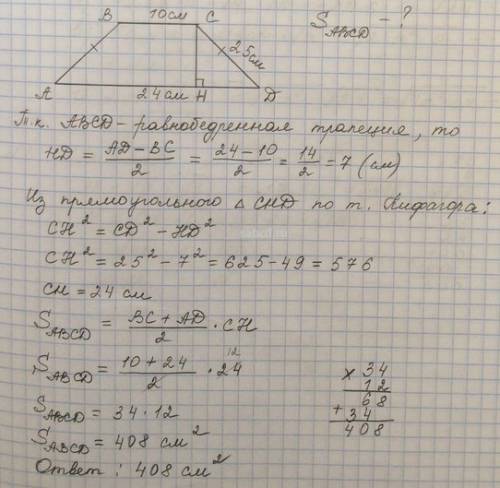 B 10см C
S_ABCD - ?
25см
A 24см H D
Т.к. ABCD - равнобедренная трапеция, то
HD = (AD - BC)/2 = (24 - 10)/2 = 14/2 = 7 (см)
Из прямоугольного △ CHD по т. Пифагора:
CH² = CD² - HD²
CH² = 25² - 7² = 625 - 49 = 576
CH = 24 см
S_ABCD = (BC + AD)/2 · CH
S_ABCD = (10 + 24)/2 · 24 12
S_ABCD = 34 · 12
S_ABCD = 408 см²
Ответ: 408 см²
× 34
12
68
+ 34
408